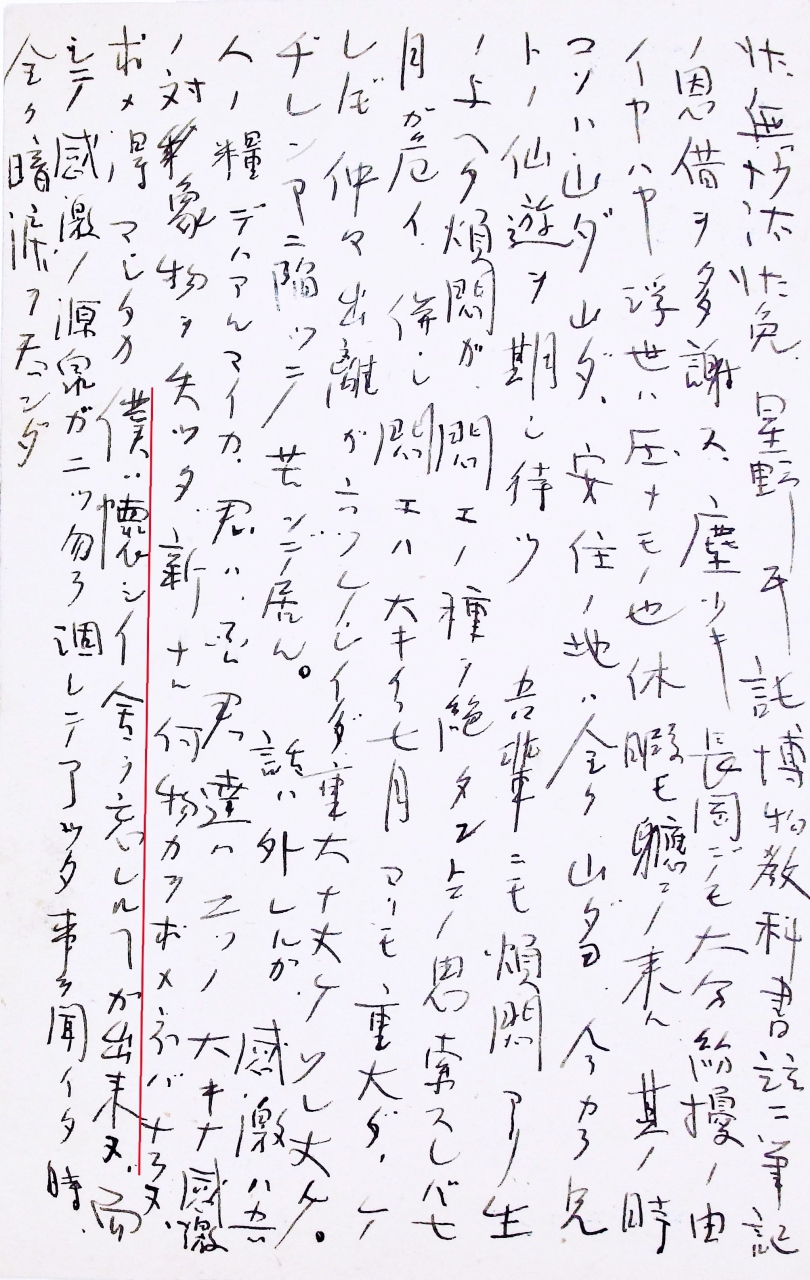 状無沙汰状免、星野氏ニ託博物教科書註ニ筆記
ノ恩借ヲ多謝ス、塵少キ長岡ジモ大分紛擾ノ由
イヤハヤ浮世ハ圧ナモノ也休暇モ軈テ来ル其ノ時
コソハ山ダ山ダ、安住ノ地ハ全ク山ダヨ、今カラ兄
トノ仙遊ヲ期シ待ツ 吾輩ニモ煩悶アリ生
ノ与ヘタ煩悶ガ、悶エノ種ヲ絶タントノ思案スレバ七
月ガ危イ、併シ悶エハ大キイ七月ヨリモ重大ダ、ケ
レドモ仲々出離ガ六ツカシイダ重大ナ丈ケソレ丈ケ。
ヂレンマニ陥ツテ苦ンデ居ル。 話ハ外レルガ、感激ハ吾
人ノ糧デハアルマイカ、君ハ、否君達ハ二ツノ大キナ感激
ノ対象物ヲ失ツタ、新ナル何物カヲ求メネバナラヌ、
求メ得マシタカ 僕ハ懐シイ舎ヲ忘レルコトガ出来ヌ、而
シテ感激ノ源泉ガ二ツ勿ラ凋レテアツタ事ヲ聞イタ時、
全ク暗涙ヲ呑ンダ